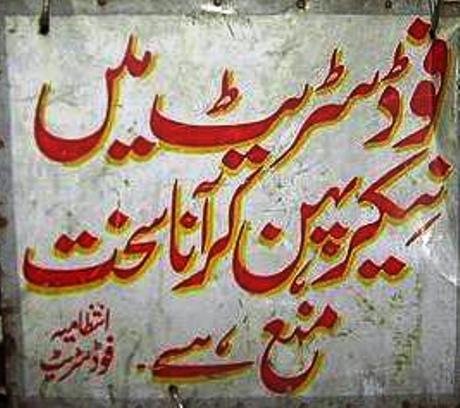 فوڈ سٹریٹ میں
نیکر پہن کر آنا سخت
منع ہے۔
انتظامیہ
فوڈ سٹریٹ